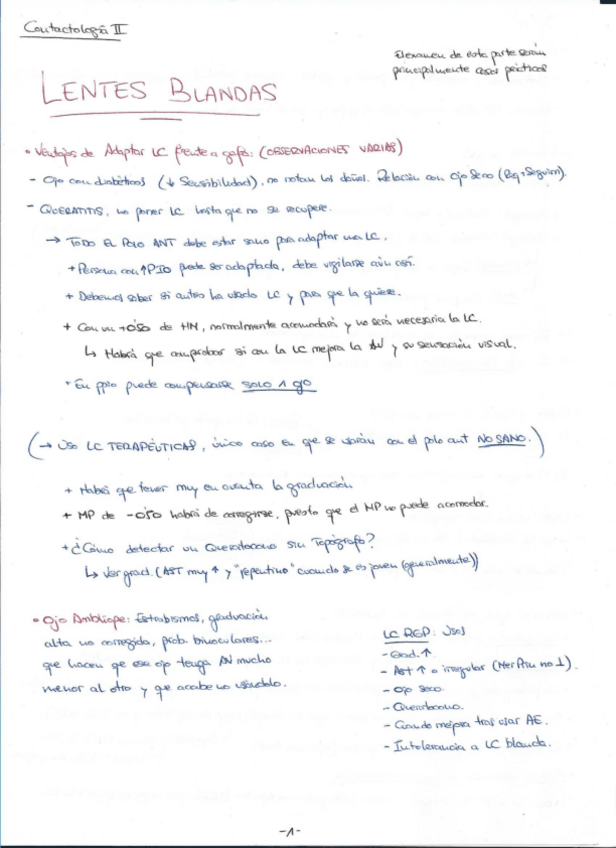 Contactología II
El examen de esta parte serán
principalmente casos prácticos
LENTES BLANDAS
• Ventajas de Adaptar LC frente a gafa: (OBSERVACIONES VARIAS)
- Ojo con diabéticos (↓ Sensibilidad), no notan los daños. Relación con ojo seco (Req + Seguim).
- QUERATITIS, no poner LC hasta que no se recupere.
→ TODO EL POLO ANT debe estar sano para adaptar una LC.
+ Persona con ↑PIO puede ser adaptada, debe vigilarse aún así.
+ Debemos saber si antes ha usado LC y para que la quiere.
+ Con un +0'50 de HM, normalmente acomodará y no será necesaria la LC.
↳ Habrá que comprobar si con la LC mejora la AV y su sensación visual.
+ En ppio puede compensarse SOLO 1 ojo
(→ Uso LC TERAPÉUTICAS, único caso en que se usarán con el polo ant NO SANO.)
+ Habrá que tener muy en cuenta la graduación
+ MP de -0'50 habrá de corregirse, puesto que el MP no puede acomodar.
+ ¿Cómo detectar un Queratocono sin Topógrafo?
↳ Ver grad. (AST muy ↑ y "repentino" cuando se es joven (generalmente))
• Ojo Ambliope: Estrabismos, graduación
alta no corregida, prob. binoculares...
que hacen que ese ojo tenga AV mucho
menor al otro y que acabe no usándolo.
LC RGP: Usos
- Grad. ↑
- Ast ↑ o irregular (Mer Ppal no ⊥).
- Ojo seco.
- Queratocono.
- Cuando mejora tras usar AE.
- Intolerancia a LC blanda.
-1-